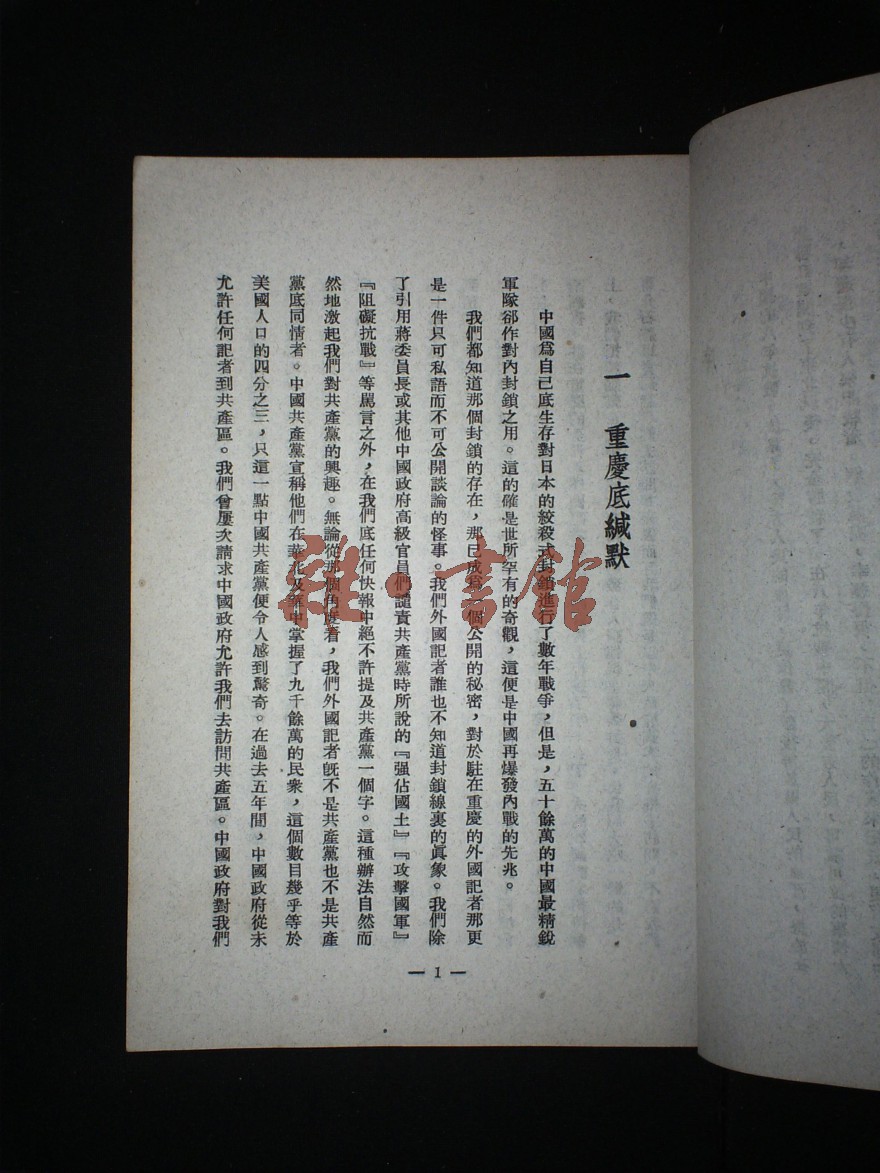 一 重慶底緘默
中國爲自己底生存對日本的絞殺式封鎖進行了數年戰爭，但是，五十餘萬的中國最精銳
軍隊卻作對內封鎖之用。這的確是世所罕有的奇觀，這便是中國再爆發內戰的先兆。
我們都知道那個封鎖的存在，那已成爲一個公開的秘密，對於駐在重慶的外國記者那更
是一件只可私語而不可公開談論的怪事。我們外國記者誰也不知道封鎖線裏的眞象。我們除
了引用蔣委員長或其他中國政府高級官員們譴責共產黨時所說的『强佔國土』『攻擊國軍』
『阻礙抗戰』等罵言之外，在我們底任何快報中絕不許提及共產黨一個字。這種辦法自然而
然地激起我們對共產黨的興趣。無論從那個角度看，我們外國記者旣不是共產黨也不是共產
黨底同情者。中國共產黨宣稱他們在華北及華中掌握了九千餘萬的民衆，這個數目幾乎等於
美國人口的四分之三，只這一點中國共產黨便令人感到驚奇。在過去五年間，中國政府從未
允許任何記者到共產區。我們曾屢次請求中國政府允許我們去訪問共產區。中國政府對我們
— 1 —
雜·書館